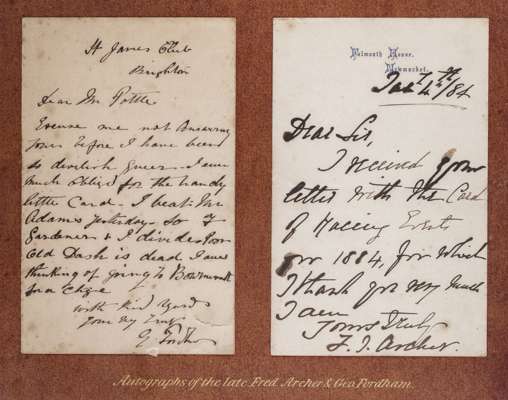 St James Club
Brighton
Dear Mr Pottle
Excuse me not Answering
yours before I have been
so devilish queer. I am
much obliged for the handy
little Card. I beat Mr
Adams yesterday. So F
Gardener & I divide. Poor
Old Dash is dead. I am
thinking of going to Bournemouth
for a Chge
With Kind regards
Yours very truly
G. Fordham
Falmouth House,
Newmarket.
Jan 4th/84
Dear Sir,
I received your
letter with the Card
of Racing Events
for 1884, for which
I thank you very much
I am
Yours truly
F. J. Archer.
Autographs of the late Fred Archer & Geo. Fordham.